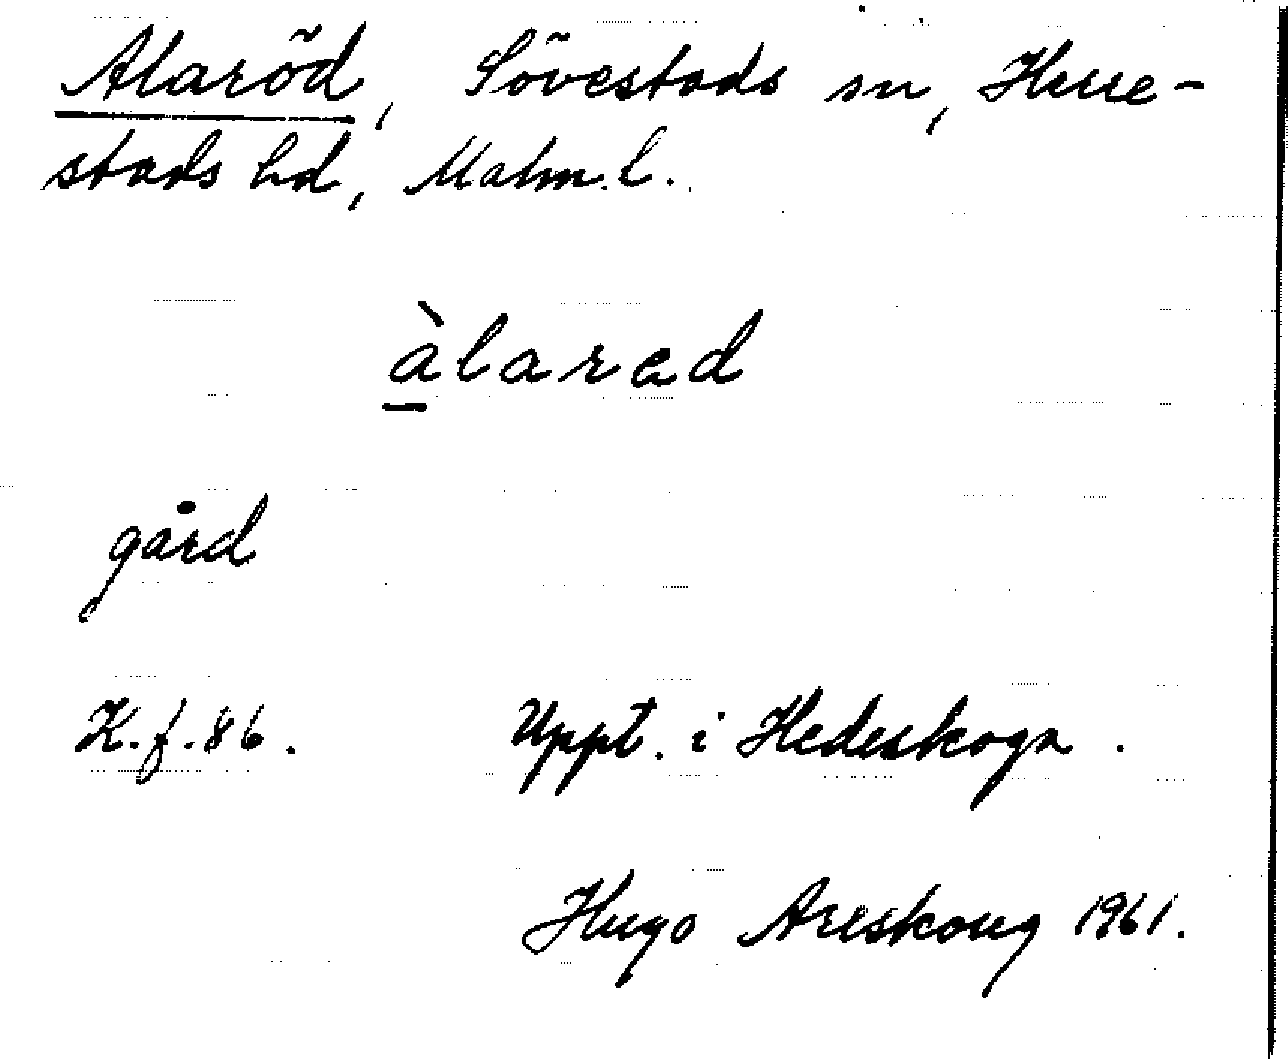 Alaröd, Sövestads sn, Herre-
stads hd, Malm. l.
àlarad
gård
K. f. 86.
Uppt. i Hedeskoga.
Hugo Areskoug 1961.